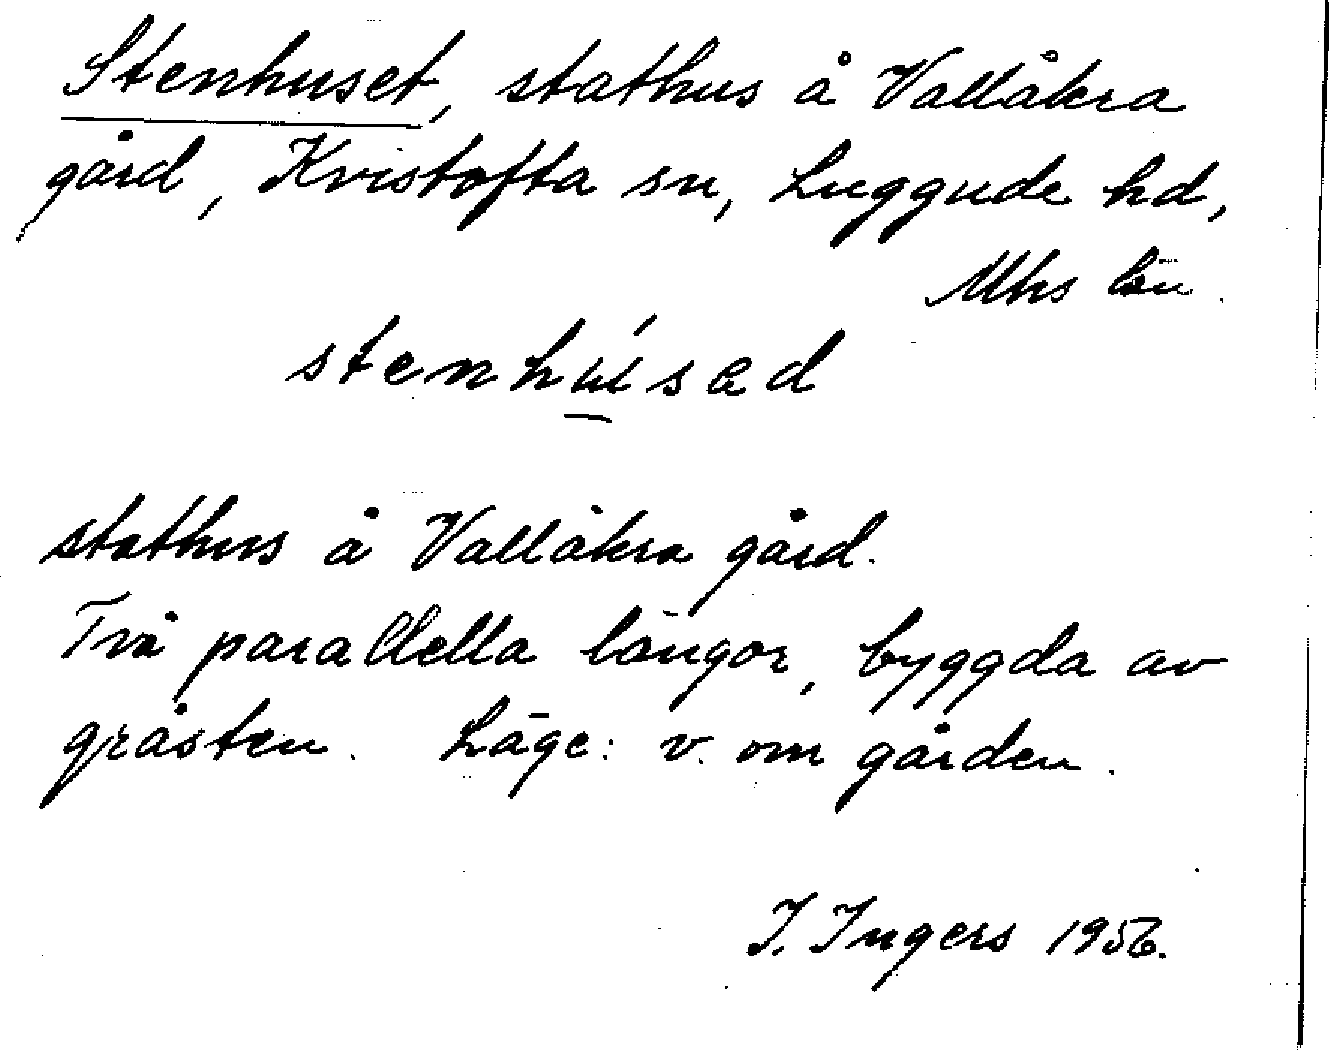 Stenhuset, stathus å Vallåkra
gård, Kvistofta sn, Luggude hd,
Mhs län.
stenhúsəd
stathus å Vallåkra gård.
Två parallella längor, byggda av
gråsten. Läge: v. om gården.
I. Ingers 1956.